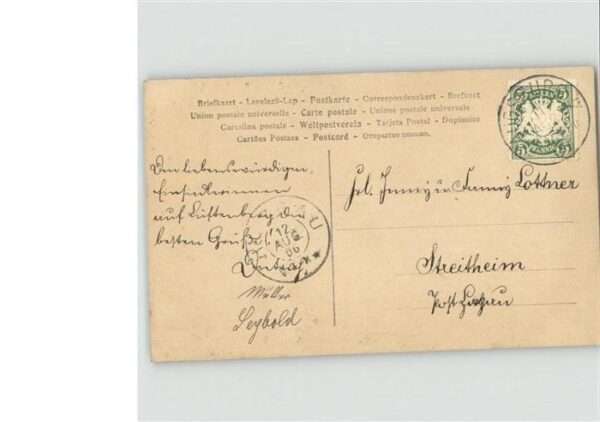 Briefkaart - Levelező-Lap - Postkarte - Correspondenzkart - Brefkort
Union postale universelle - Carte postale - Union postale universelle
Cartolina postale - Weltpostverein - Tarjeta Postal - Dopisnice
Cartões Postaes - Postcard - Открытое письмо.
Den liebenswürdigen
Einsenderinnen
auf Lüftenberg die
besten Grüße!
Müller
Leybold
12 AUG 06
Frl. Jenny u. Fanny Lottner
Streitheim
Post Zusmarshausen
5 5